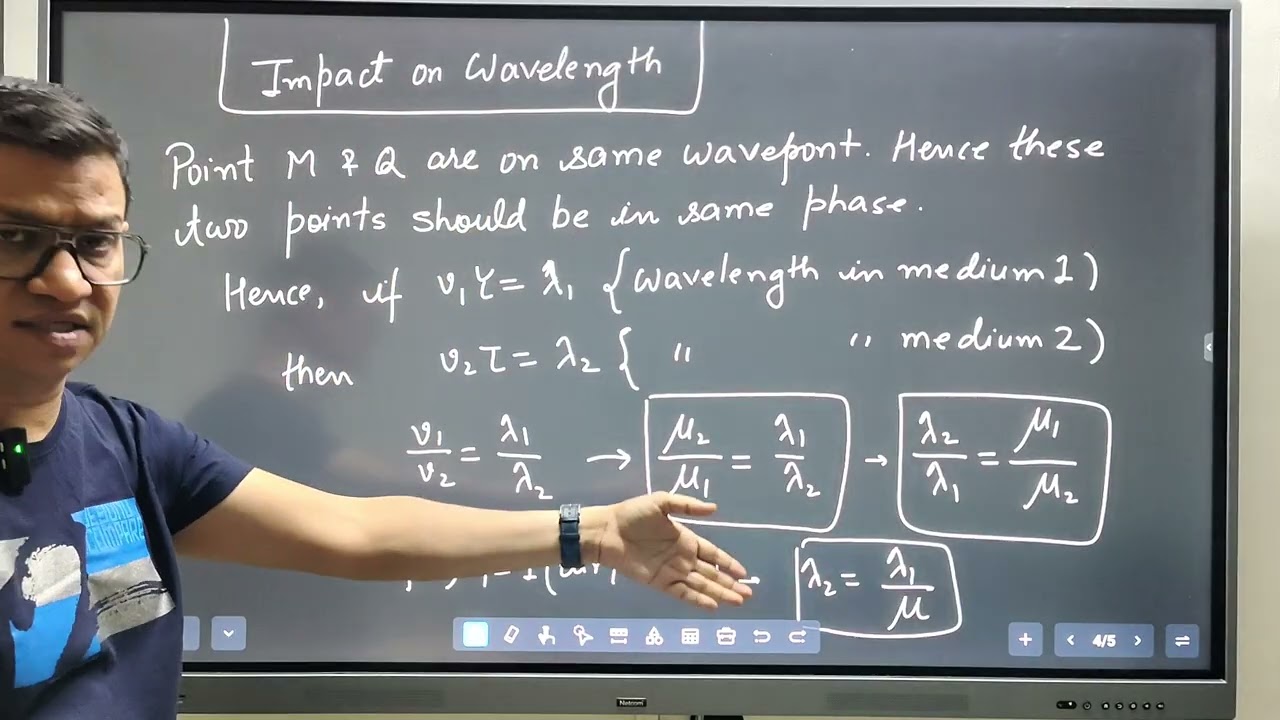 Impact on Wavelength
Point M & Q are on same wavepont. Hence these
two points should be in same phase.
Hence, if v₁τ = λ₁ {wavelength in medium 1)
then v₂τ = λ₂ { " " medium 2)
v₁/v₂ = λ₁/λ₂ → μ₂/μ₁ = λ₁/λ₂ → λ₂/λ₁ = μ₁/μ₂
λ₂ = λ₁/μ
4/5